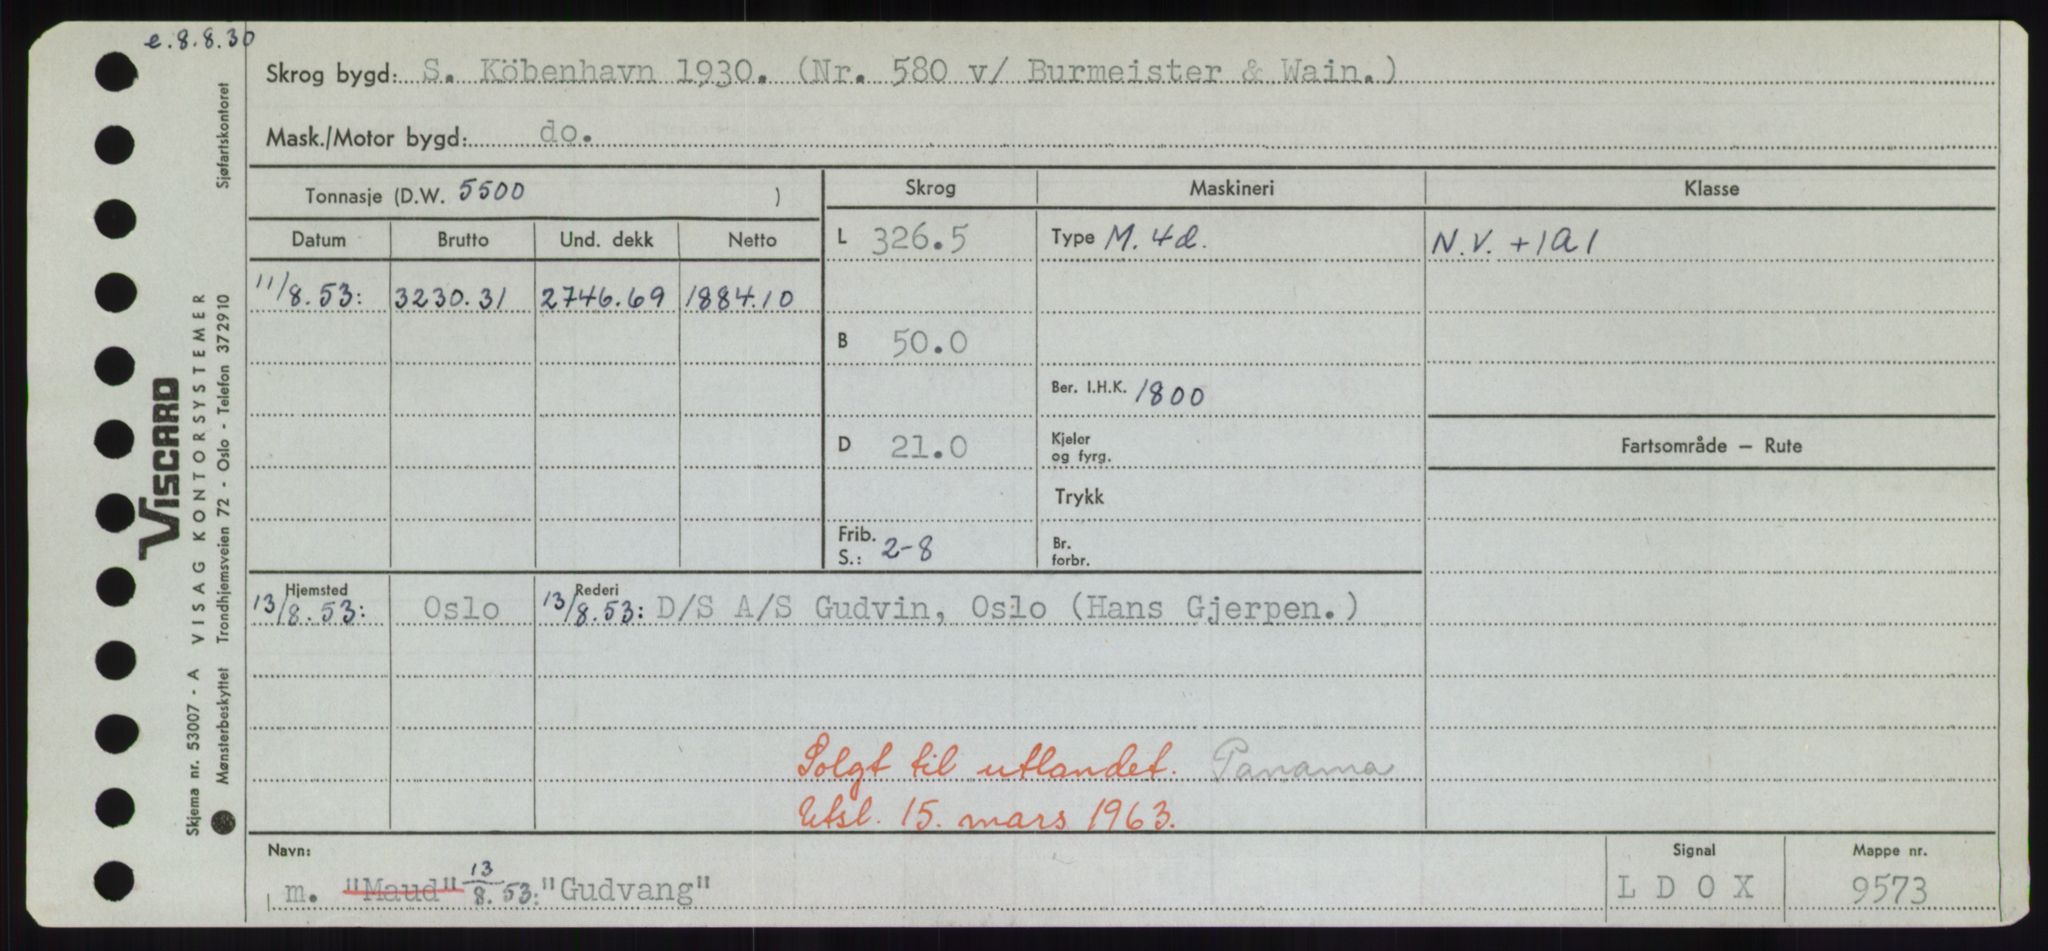 e.8.8.30
Skrog bygd: S. Köbenhavn 1930. (Nr. 580 v/ Burmeister & Wain.)
Mask./Motor bygd: do.
Tonnasje (D.W. 5500 )
Skrog Maskineri Klasse
Datum Brutto Und. dekk Netto
L 326.5 Type M. 4d. N.V. +1A1
11/8.53: 3230.31 2746.69 1884.10
B 50.0
Ber. I.H.K. 1800
D 21.0 Kjeler og fyrg.
Fartsområde — Rute
Trykk
Frib. S.: 2-8 Br. forbr.
Hjemsted Rederi
13/8.53: Oslo 13/8.53: D/S A/S Gudvin, Oslo (Hans Gjerpen.)
Solgt til utlandet. Panama
Utsl. 15. mars 1963.
Navn: Signal Mappe nr.
m. "Maud" 13/8.53: "Gudvang" L D O X 9573
VISCARD
Skjema nr. 53007 - A VISAG KONTORSYSTEMER
Mønsterbeskyttet Trondhjemsveien 72 - Oslo - Telefon 372910 Sjøfartskontoret